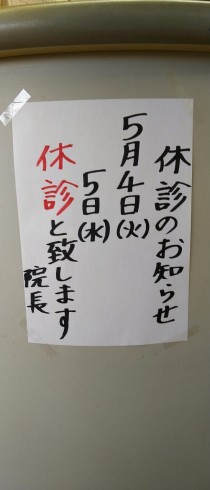 休診のお知らせ
5月4日(火)
5日(水)
休診と致します
院長